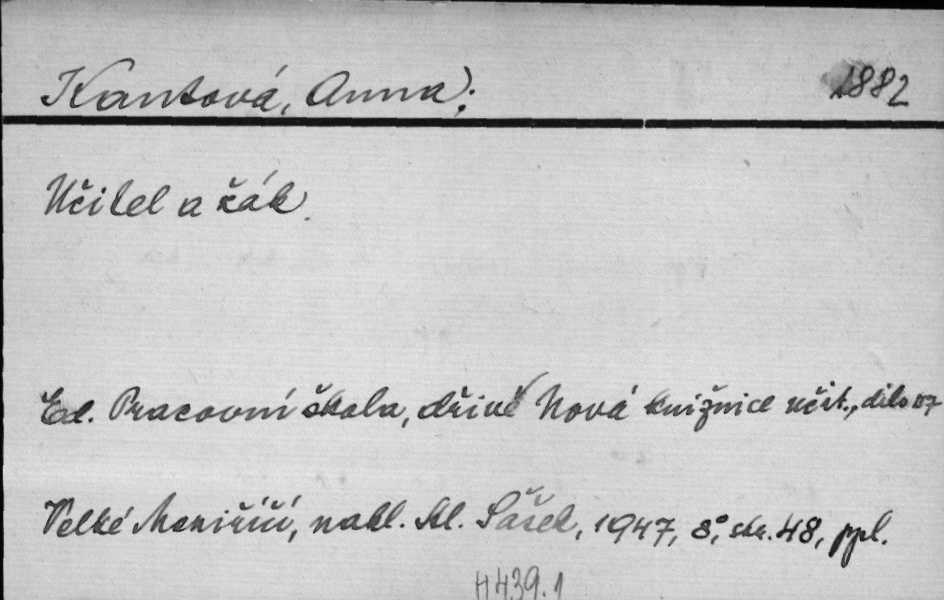 Kantová, Anna: 1882
Učitel a žák.
Ed. Pracovní škola, dříve Nová knižnice učit., dílo 57
Velké Meziříčí, nakl. Al. Šašek, 1947, 8°, str. 48, ppl.
H 439.1